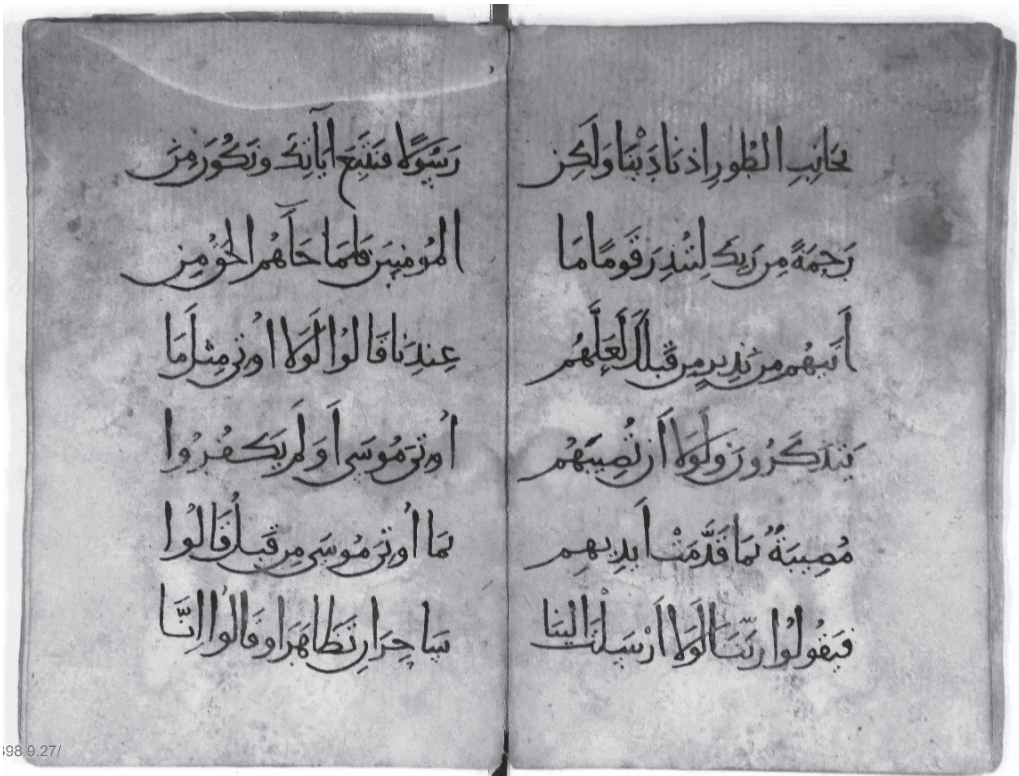 بجانب الطور إذ نادينا ولكن
رَحمَةً مِن رَبِكَ لِتُنذِرَ قَومًا مَا
أَتيهُم مِن نَذِيرٍ مِن قَبلِكَ لَعَلَّهُم
يَتَذَكَّرُونَ وَلَولَا أَن تُصِيبَهُم
مُصِيبَةٌ بِمَا قَدَّمَتْ أَيدِيهِم
فَيَقُولُوا رَبَّنَا لَولَا أَرْسَلْتَ إِلَينَا
رَسُولًا فَنَتَّبِعَ آيَاتِكَ وَنَكُونَ مِنَ
المُؤمِنِينَ فَلَمَا جَآهُم الحَقُ مِن
عِندِنَا قَالُوا لَولَا أُوتِيَ مِثلَ مَا
أُوتِيَ مُوسَى أَوَلَم يَكفُرُوا
بِمَا أُوتِيَ مُوسَى مِن قَبلُ قَالُوا
سَاحِرَانِ تَظَاهَرَا وَقَالُوا إِنَّا
898.9.27/